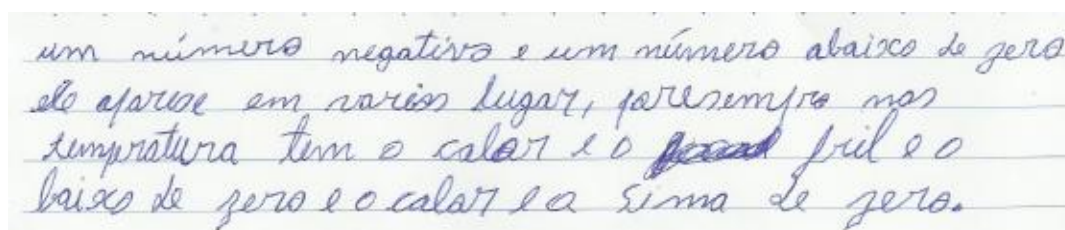 um número negativo e um número abaixo de zero
ele aparese em varios lugar, poresempro nas
temperatura tem o calor e o fril e o
baixo de zero e o calar e a sima de zero.